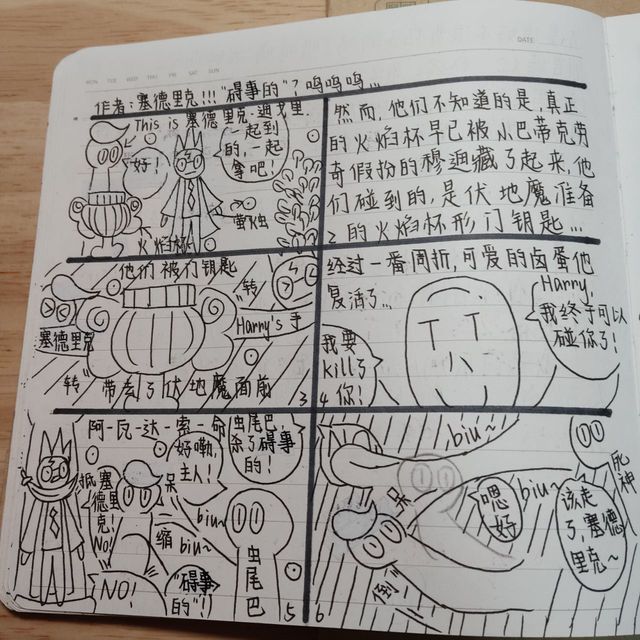 MON TUE WED THU FRI SAT SUN
DATE
作者:塞德里克!!!"碍事的"?呜呜呜...
This is 塞德里克·迪戈里.
好!
一起到
的,一起
拿吧!
火焰杯
萤火虫
1
然而,他们不知道的是,真正
的火焰杯早已被小巴蒂克劳
奇假扮的穆迪藏了起来,他
们碰到的,是伏地魔准备
的火焰杯形门钥匙...
2
他们被门钥匙
"转"
塞德里克
Harry's 手
"转"
带去了伏地魔面前
3
经过一番周折,可爱的卤蛋他
复活了...
Harry,
我终于可以
碰你了!
我要
kill了
你!
4
阿-瓦-达-索-命
好嘞,
主人!
虫尾巴,
杀了碍事
的!
塞
德
里
克!
No!
呆
biu~
缩
biu~
NO!
"碍事
的"!
虫
尾
巴
5
biu~
呆
嗯
好
biu~
死
神
该走
了,塞德
里克~
"倒"
6